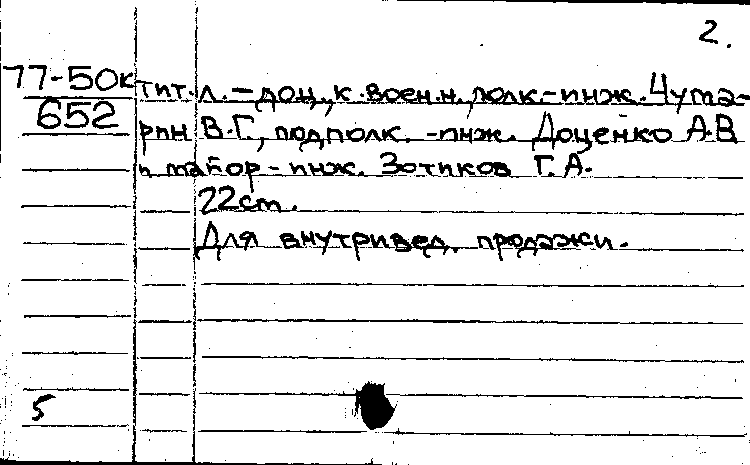 2.
77-50к тит. л. – доц., к. воен. н., полк.-инж. Чума-
652 рин В.Г., подполк.-инж. Доценко А.В
и майор-инж. Зотиков Г.А.
22cm.
Для внутривед. продажи.
5